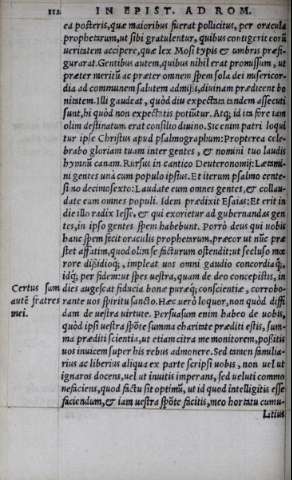 112 IN EPIST. AD ROM.
ea posteris, quæ maioribus fuerat pollicitus, per oracula
prophetarum, ut sibi gratulentur, quibus contigerit eorũ
ueritatem accipere, quæ lex Mosi typis & umbris præfi-
gurarat. Gentibus autem, quibus nihil erat promissum, ut
præter meritũ ac præter omnem spem sola dei misericor-
dia ad communem salutem admissi, diuinam prædicent bo
nitatem. Illi gaudeat, quòd diu expectata tandem assecuti
sunt, hi quòd non expectatis potiũtur. Atq; id ita fore iam
olim destinatum erat consilio diuino. Sic enim patri loqui
tur ipse Christus apud psalmographum: Propterea cele-
brabo gloriam tuam inter gentes, & nomini tuo laudis
hymnũ canam. Rursus in cantico Deuteronomij: Lætami-
ni gentes unà cum populo ipsius. Et iterum psalmo cente-
simo decimosexto: Laudate eum omnes gentes, & collau-
date eum omnes populi. Idem prædixit Esaias: Et erit in
die illo radix Iesse, & qui exorietur ad gubernandas gen
tes, in ipso gentes spem habebunt. Porrò deus qui uobis
hanc spem fecit oraculis prophetarum, precor ut nũc præ
stet affatim, quod olim se facturum ostendit: ut secluso mœ
rore dissidioq́;, impleat uos omni gaudio concordiaq́;,
idq́; per fidem: ut spes uestra, quam de deo concepistis, in
Certus sum dies augescat fiducia bonæ puræq́; conscientiæ, corrobo-
autẽ fratres rante uos spiritu sancto. Hæc uerò loquor, non quòd diffi
mei. dam de uestra uirtute. Persuasum enim habeo de uobis,
quòd ipsi uestra spõte summa charitate præditi estis, sum-
ma præditi scientia, ut etiam citra me monitorem, possitis
uos inuicem super his rebus admonere. Sed tamen familia-
rius ac liberius aliqua ex parte scripsi uobis, non uel ut
ignaros docens, uel ut inuitis imperans, sed ueluti commo
nefaciens, quod factu sit optimũ, ut id quod intelligitis esse
faciendum, & iam uestra spõte facitis, meo hortatu cumu-
latius